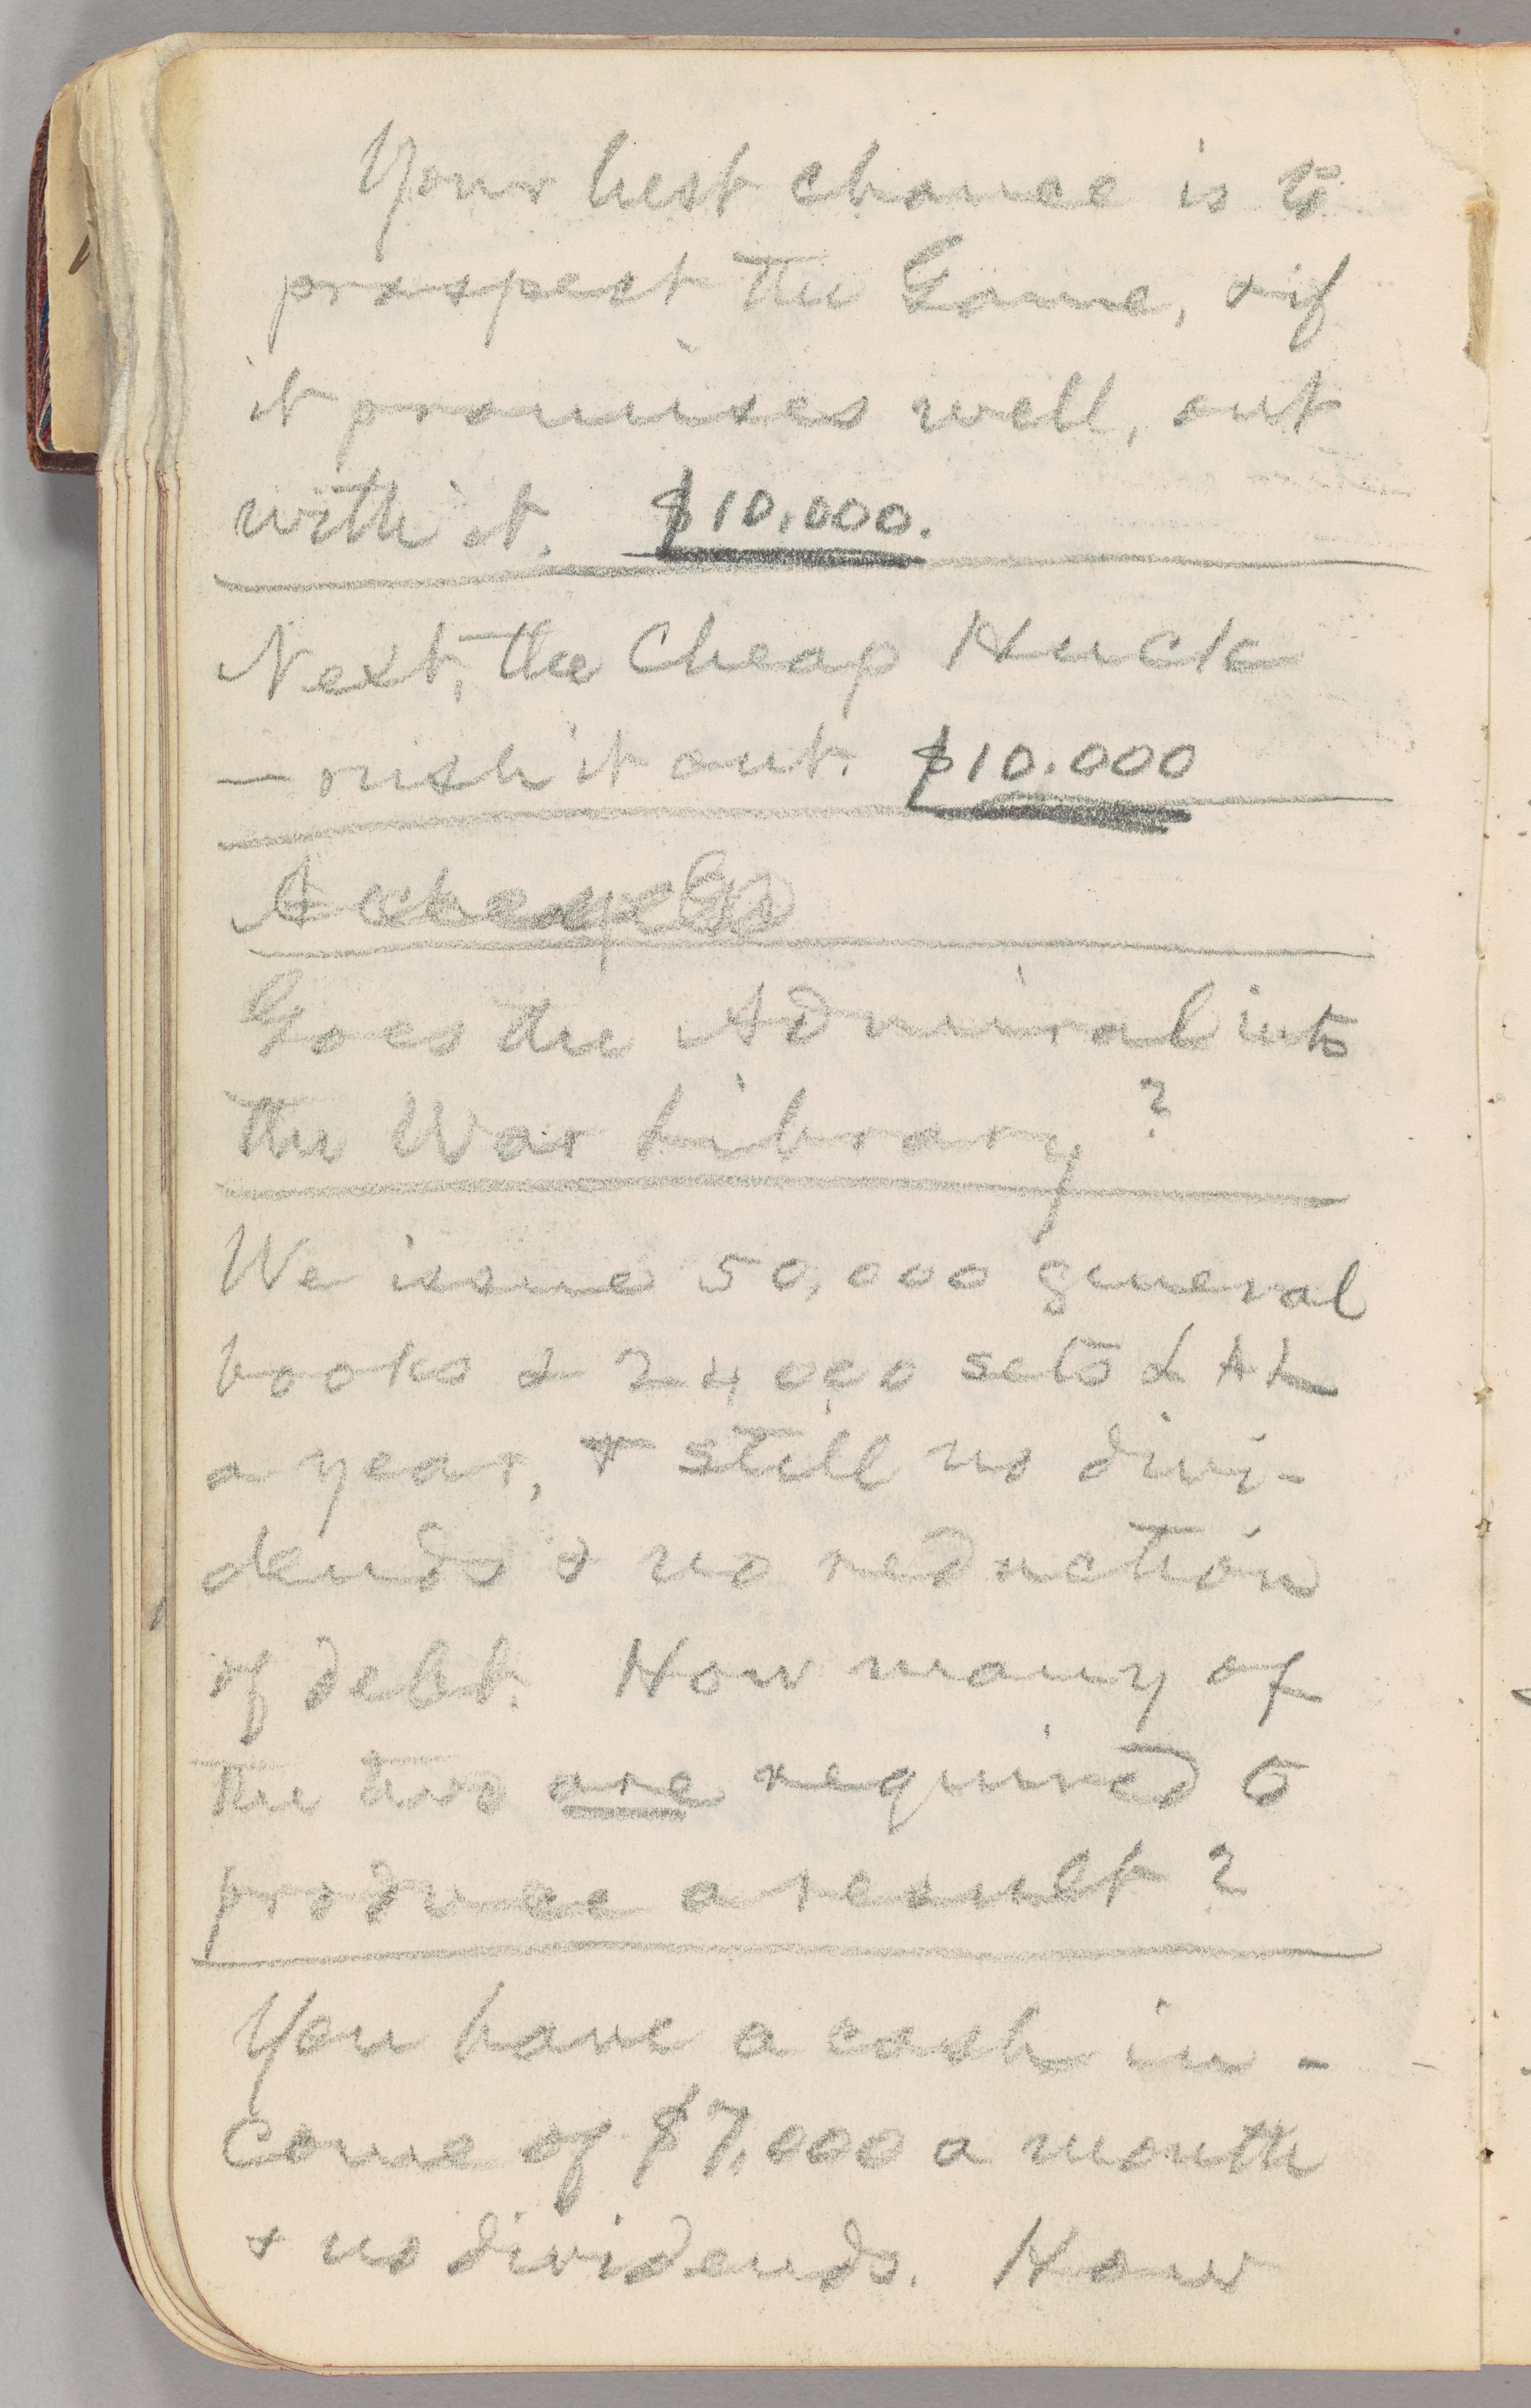 Your best chance is to
prospect the Game, & if
it promises well, out
with it. $10,000.
Next, the Cheap Huck
— rush it out. $10.000
A cheap
Goes the Admiral into
the War Library?
We issue 50,000 general
books & 24,000 sets L A L
a year, & still no divi-
dends & no reduction
of debt. How many of
the two are required to
produce a result?
You have a cash in-
come of $7,000 a month
& no dividends. How